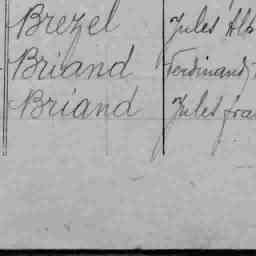 Brezel Jules Alb
Briand Ferdinand
Briand Jules fra